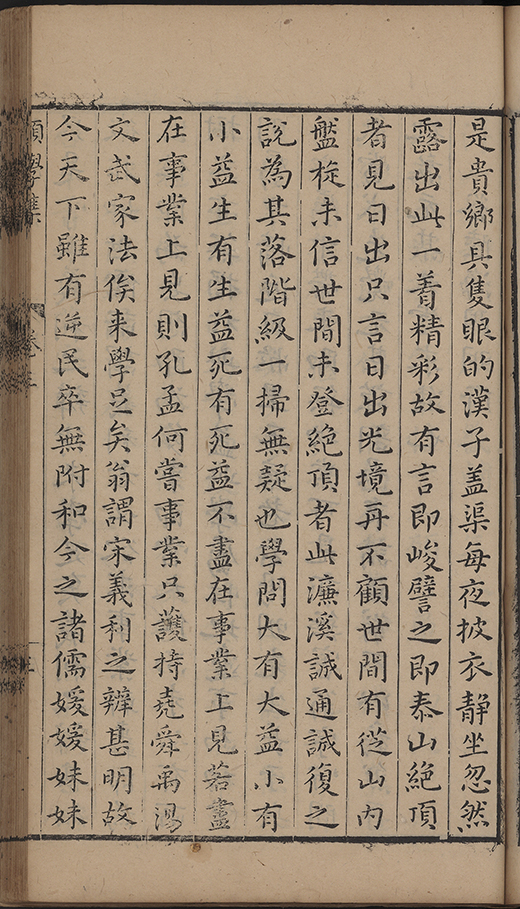 是貴鄉具隻眼的漢子盖渠每夜披衣靜坐忽然
露出此一着精彩故有言即峻譬之即泰山絕頂
者見日出只言日出光境再不顧世間有從山内
盤旋未信世間未登絕頂者此濂溪誠通誠復之
說為其落階級一掃無疑也學問大有大益小有
小益生有生益死有死益不盡在事業上見若盡
在事業上見則孔孟何嘗事業只護持堯舜禹湯
文武家法俟来學足矣翁謂宋義利之辨甚明故
今天下雖有逆民卒無附和今之諸儒媛媛姝姝
願學集
卷三